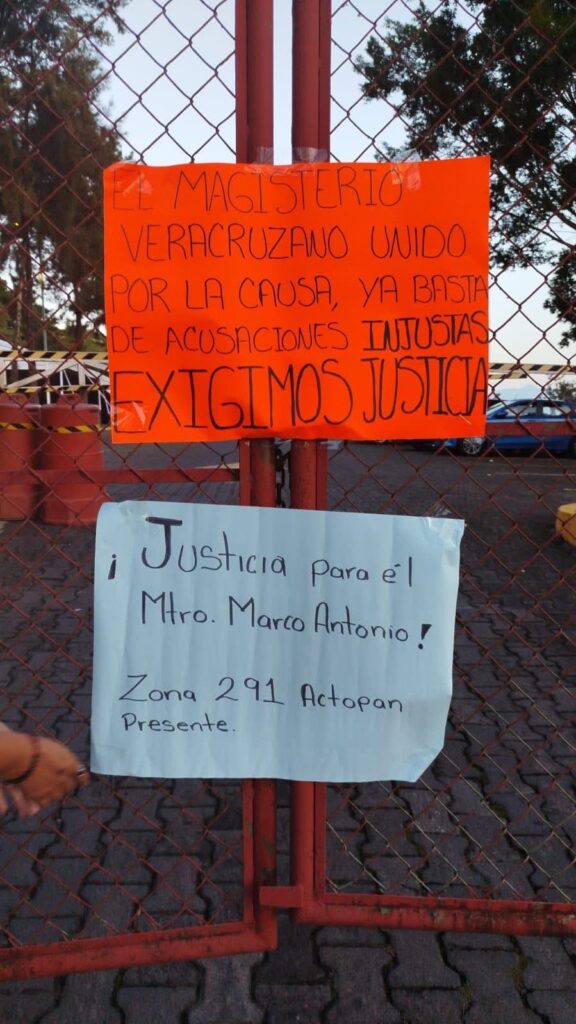 EL MAGISTERIO
VERACRUZANO UNIDO
POR LA CAUSA, YA BASTA
DE ACUSACIONES INJUSTAS
EXIGIMOS JUSTICIA
¡Justicia para él
Mtro. Marco Antonio!
Zona 291 Actopan
Presente.